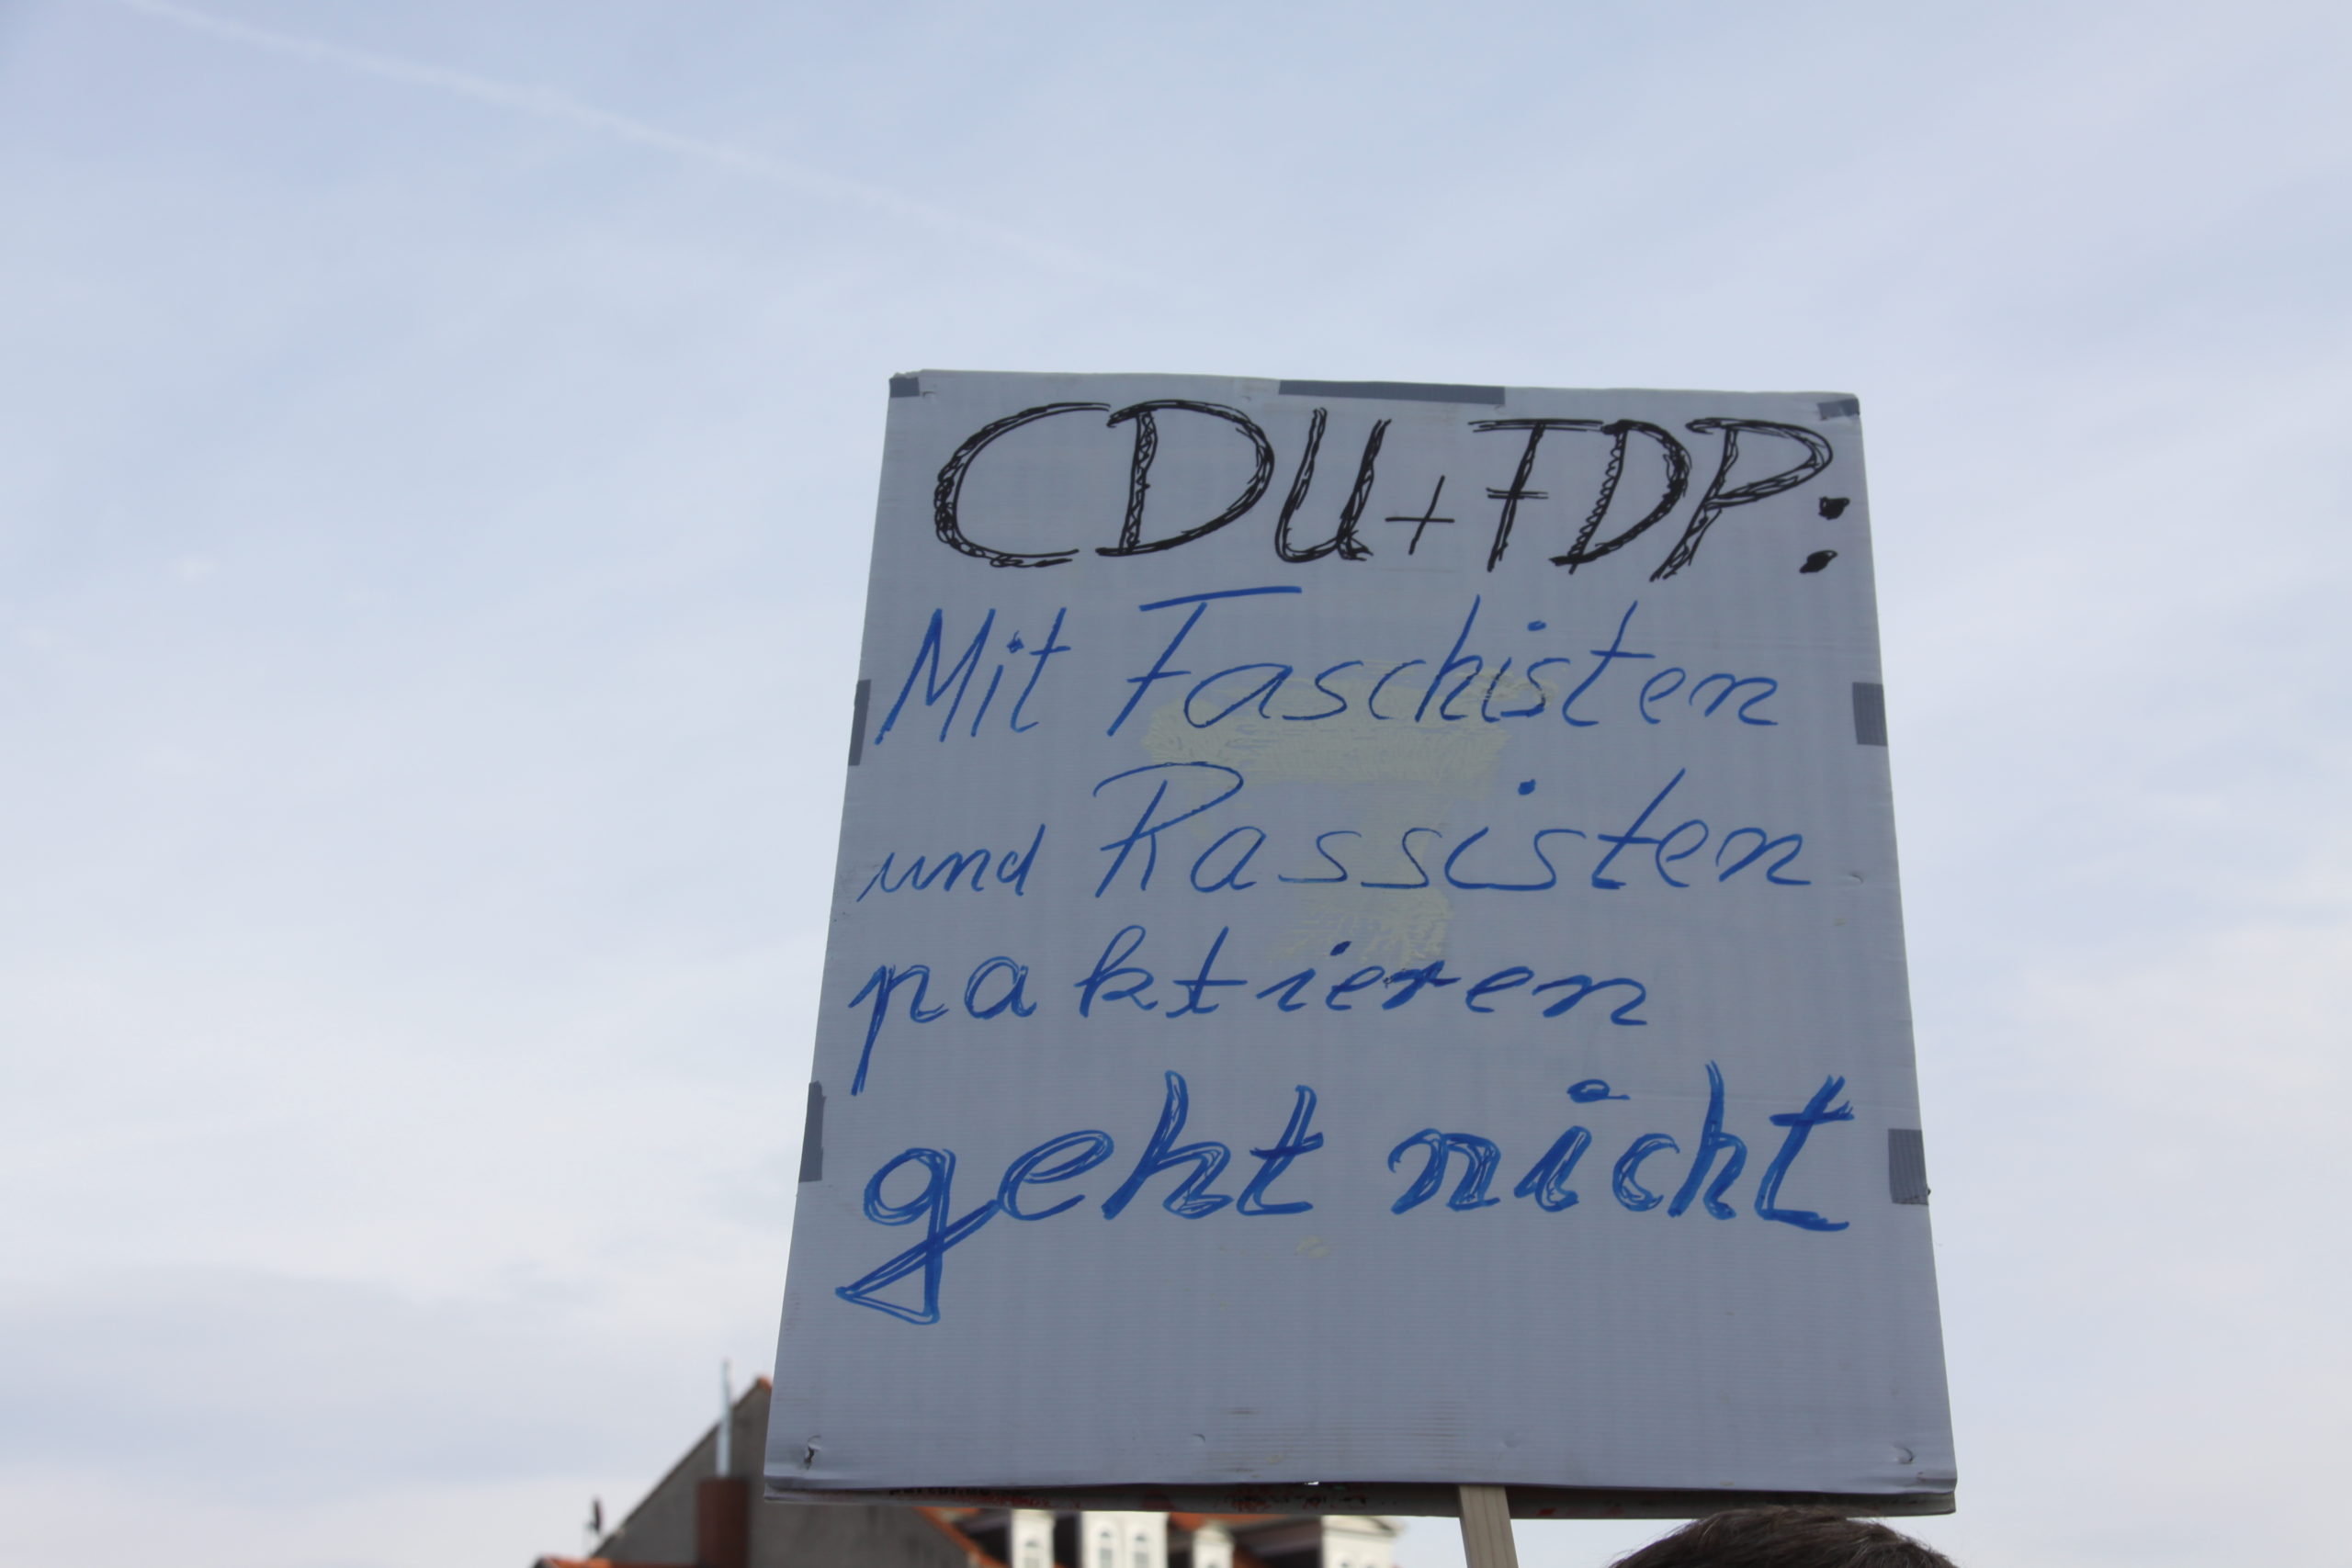 CDU+FDP:
Mit Faschisten
und Rassisten
paktieren
geht nicht